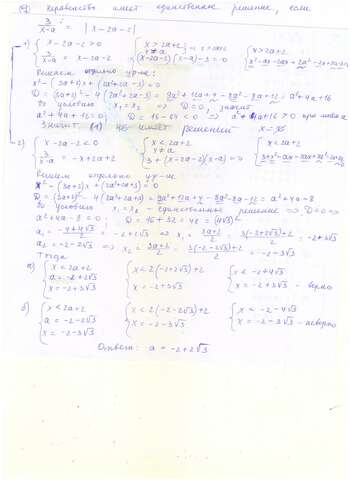 неравенство имеет единственное решение, если
3/(x-a) = |x-2a-2|
1) { x-2a-2>0
3/(x-a) = x-2a-2
{ x>2a+2
x≠a
(x-2a-2)(x-a)-3=0
{ x>2a+2
Решаем отдельно ур-ие:
x²-(3a+2)x+(2a²+2a-3)=0
D = (3a+2)²-4(2a²+2a-3) = 9a²+12a+4-8a²-8a+12 = a²+4a+16
По условию x₁=x₂ => D=0, значит
a²+4a+16=0 D=16-64<0 => a²+4a+16>0 при любом a
Значит (1) не имеет решений
2) { x-2a-2<0
3/(x-a) = -x+2a+2
{ x<2a+2
x≠a
3+(x-2a-2)(x-a)=0
{ x<2a+2
Решим отдельно ур-ие.
x²-(3a+2)x+(2a²+2a+3)=0
D = (3a+2)²-4(2a²+2a+3) = 9a²+12a+4-8a²-8a-12 = a²+4a-8
По условию x₁=x₂ - единственное решение => D=0 =>
a²+4a-8=0; D=16+32=48=(4√3)²
a₁ = (-4+4√3)/2 = -2+2√3 => x₁ = (3a+2)/2 = (3(-2+2√3)+2)/2 = -2+3√3
a₂ = -2-2√3 => x₂ = (3a+2)/2 = (3(-2-2√3)+2)/2 = -2-3√3
Тогда
а) { x<2a+2
a=-2+2√3
x=-2+3√3
{ x<2(-2+2√3)+2
x=-2+3√3
{ x<-2+4√3
x=-2+3√3 - верно
б) { x<2a+2
a=-2-2√3
x=-2-3√3
{ x<2(-2-2√3)+2
x=-2-3√3
{ x<-2-4√3
x=-2-3√3 - неверно
Ответ: a=-2+2√3